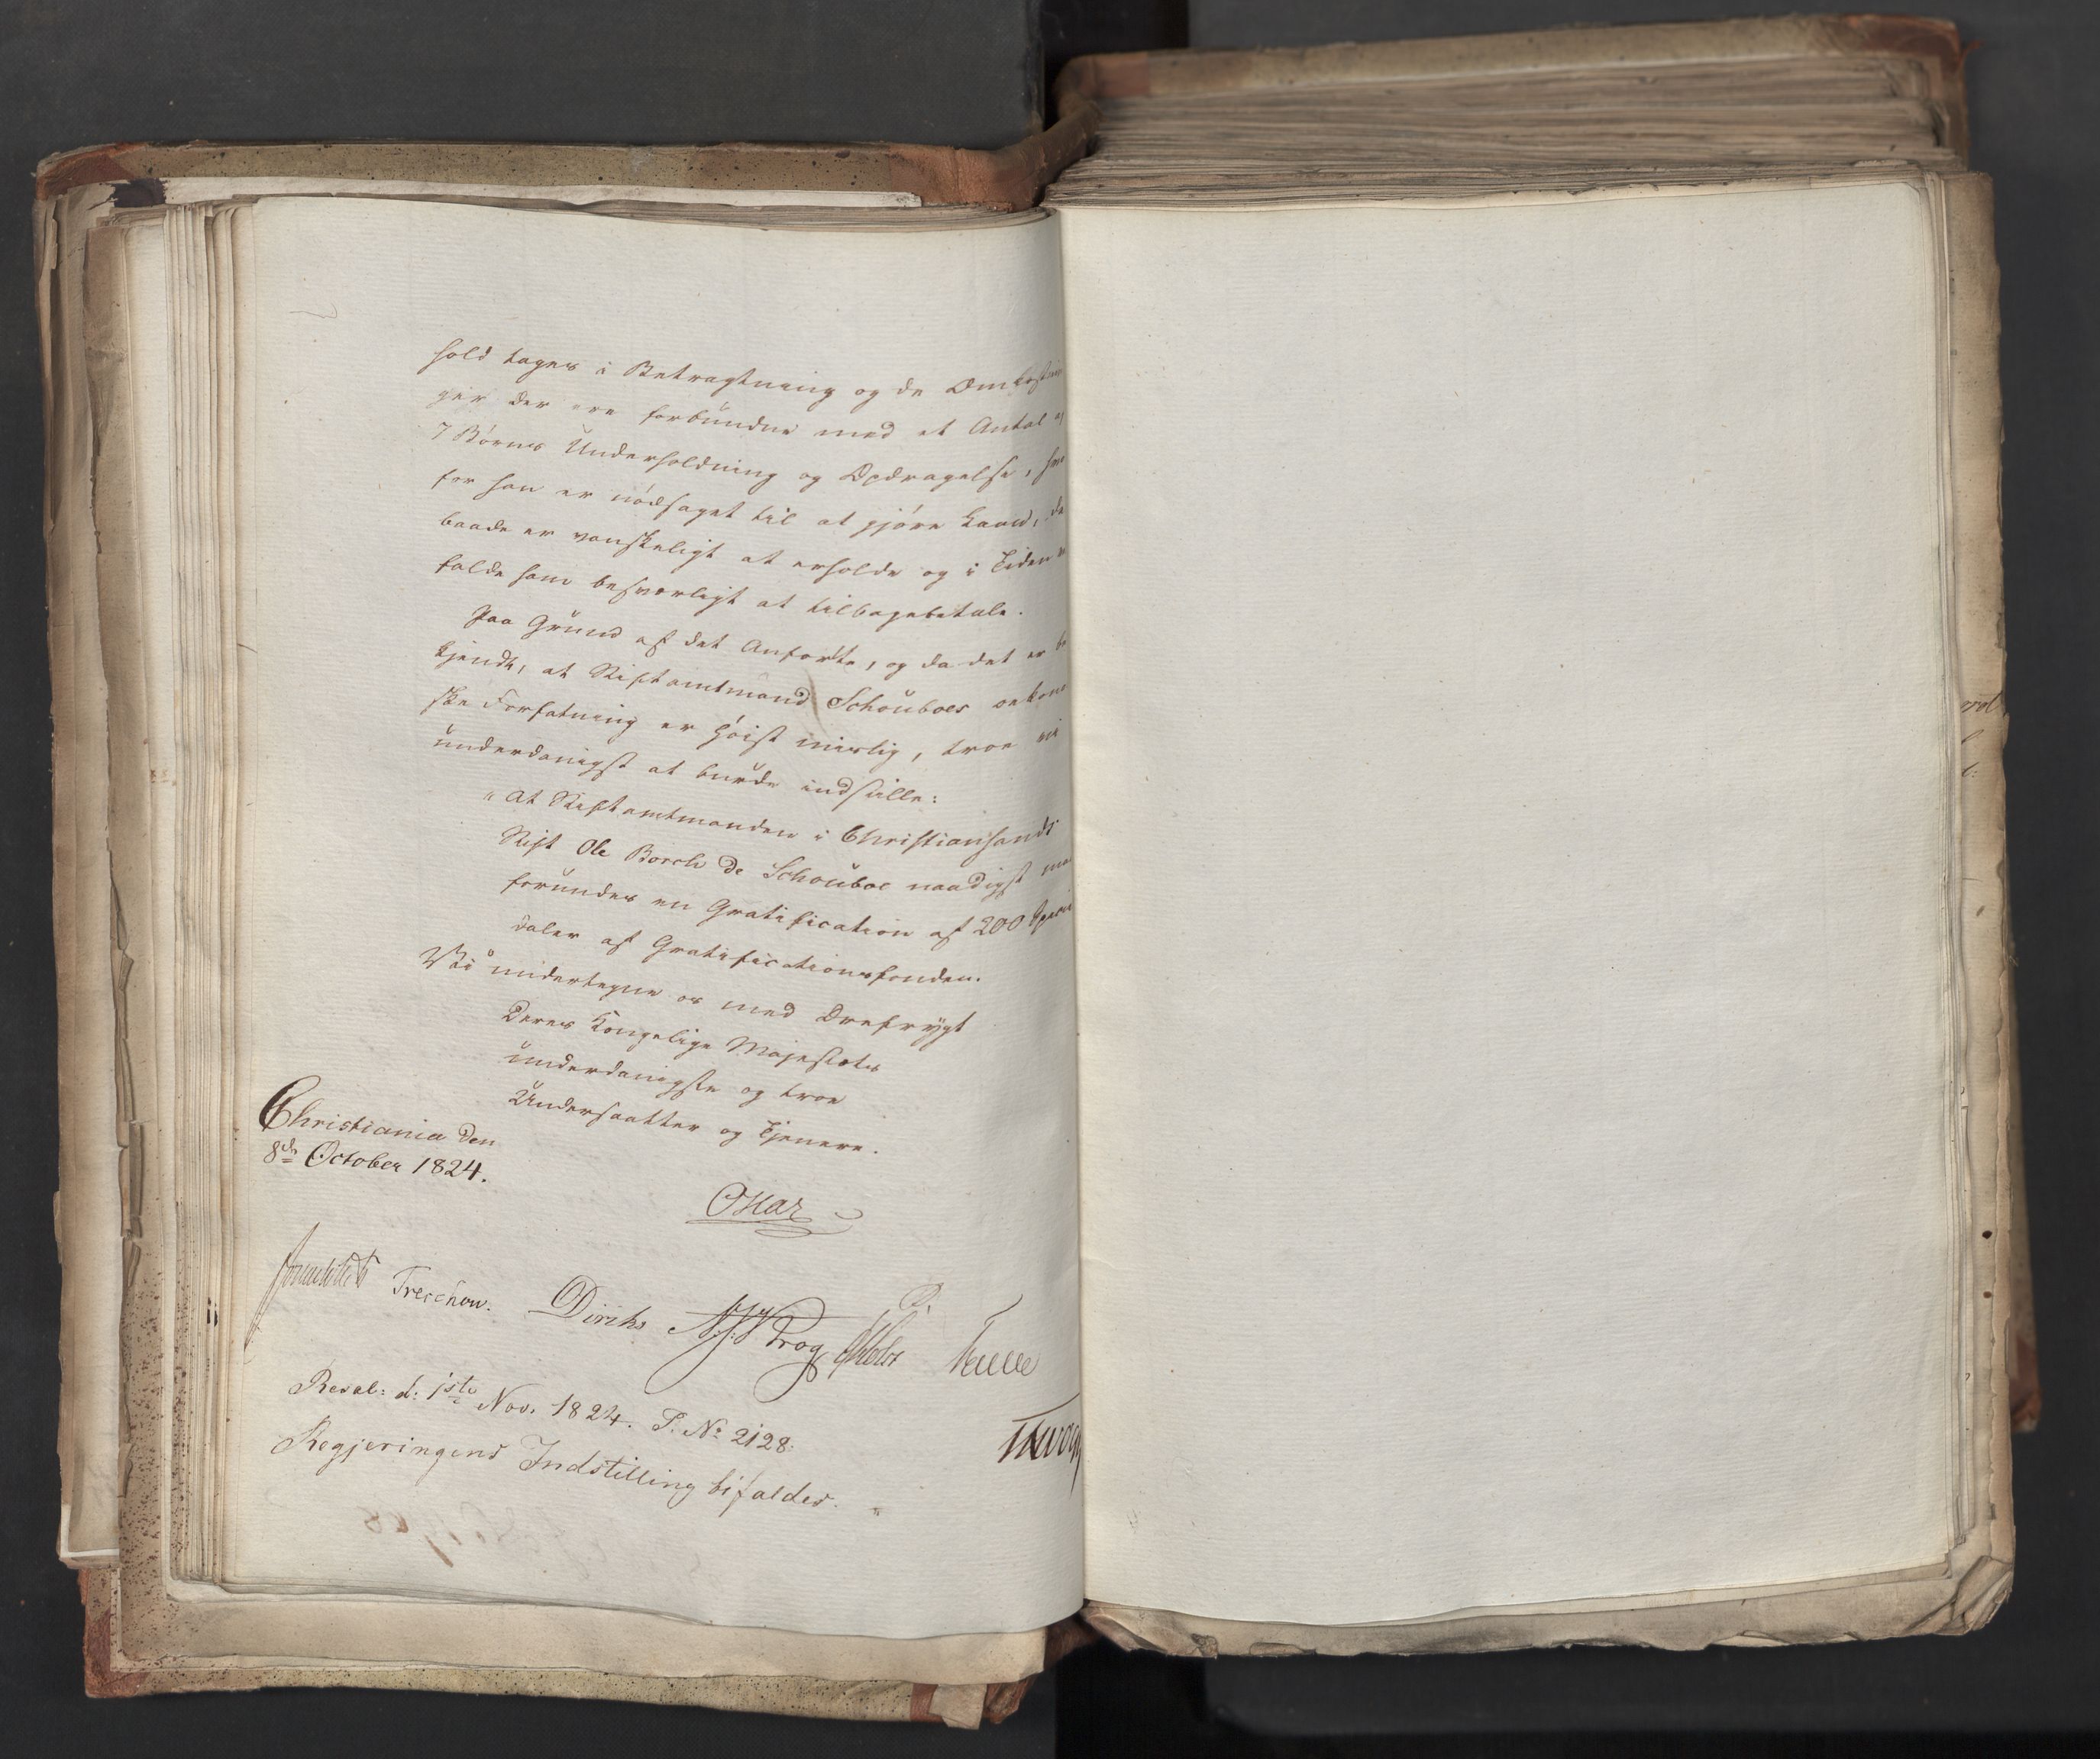 hold tages i Betragtning og de Omkostnin
ger der ere forbundne med et Antal af
7 Børns Underholdning og Opdragelse, hvor
for han er nødsaget til at gjøre Laan, der
baade er vanskeligt at erholde og i Tiden vil
falde ham besværligt at tilbagebetale.
Paa Grund af det Anførte, og da det er be
kjendt, at Stiftamtmand Schouboes oekonomi
ske Forfatning er høist mislig, troe vi
underdanigst at burde indstille:
"At Stiftamtmanden i Christiansands
Stift Ole Borch de Schouboe naadigst maa
forundes en Gratification af 200 Specie
daler af Gratificationsfonden.
Vi undertegne os med Ærefrygt
Deres Kongelige Majestæts
underdanigste og troe
Undersaatter og Tjenere.
Christiania den
8de October 1824.
Oscar
Sommerhielm Treschow. Diriks Krog Fasting
Resol: d: 1ste Nov. 1824. P. No 2128.
Regjeringens Indstilling bifaldes.